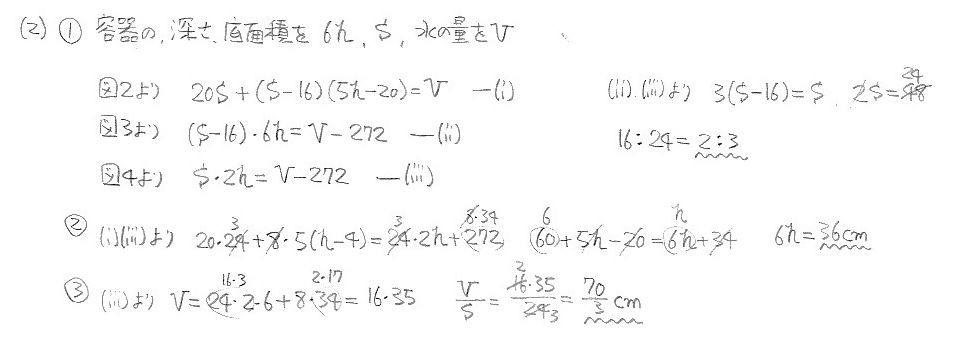 (2) ① 容器の,深さ,底面積を 6h, S, 水の量をV
図2より 20S+(S-16)(5h-20)=V —(i)
図3より (S-16)・6h=V-272 —(ii)
図4より S・2h=V-272 —(iii)
(ii).(iii)より 3(S-16)=S. 2S=48 24
16:24=2:3
② (i)(iii)より 20・24+8・5(h-4)=24・2h+272 3 3 8・34 60+5h-20=6h+34 6 h 6h=36cm
③ (iii)より V=24・2・6+8・34=16・35 16・3 2・17 V/S=16・35/24=70/3 cm 2 3